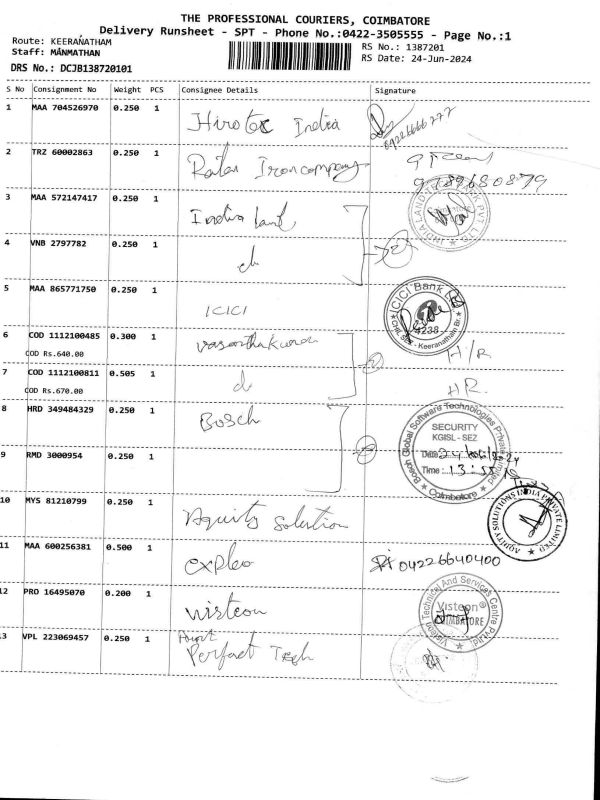 THE PROFESSIONAL COURIERS, COIMBATORE
Delivery Runsheet - SPT - Phone No.:0422-3505555 - Page No.:1
Route: KEERANATHAM
RS No.: 1387201
Staff: MANMATHAN
RS Date: 24-Jun-2024
DRS No.: DCJB138720101
S No Consignment No Weight PCS Consignee Details Signature
1 MAA 704526970 0.250 1 Hirotec India
2 TRZ 60002863 0.250 1
9789680879
3 MAA 572147417 0.250 1 India land
4 VNB 2797782 0.250 1 do
5 MAA 865771750 0.250 1 ICICI
ICICI Bank
4238
CHIL SEZ - Keeranatham Br.
6 COD 1112100485 0.300 1 Vasanthakumar H/R
COD Rs.640.00
7 COD 1112100811 0.505 1 do HR
COD Rs.670.00
8 HRD 349484329 0.250 1 Bosch
Bosch Global Software Technologies Private Limited
SECURITY
KGISL - SEZ
Date: 24/06/2024
Time: 13:55
Coimbatore
9 RMD 3000954 0.250 1
10 MYS 81210799 0.250 1 Aquity solution
AQUITY SOLUTIONS INDIA PRIVATE LIMITED
11 MAA 600256381 0.500 1 expleo 04226640400
12 PRO 16495070 0.200 1 visteon
Visteon Technical And Services Centre Pvt.Ltd
Visteon®
COIMBATORE
13 VPL 223069457 0.250 1 Point
Perfact Tech